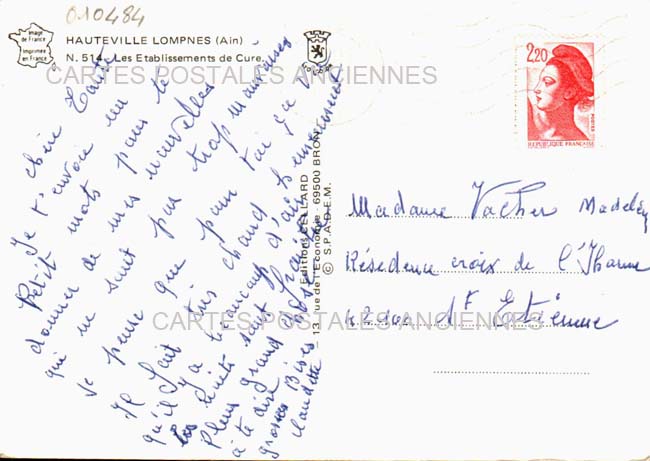 010484
Image
de France
Imprimée
en France
HAUTEVILLE LOMPNES (Ain)
N. 514 - Les Etablissements de Cure.
CARTES POSTALES ANCIENNES
chère Tante
Je t'envoie un
Petit mots pour te
donner de mes nouvelles
qui ne sont pas trop mauvaises
Je pense que pour toi ça
Il fait très chaud
qu'il y a beaucoup d'air
les nuits sont fraiche
Plus grand chose
à te dire
grosses Bises
Claudette
Editions CELLARD
13, rue de l'Economie - 69500 BRON
© S.P.A.D.E.M.
2,20
POSTES
REPUBLIQUE FRANÇAISE
Madame Vacher
Résidence croix de l'Horme
42200 St Etienne
CARTES POSTALES ANCIENNES